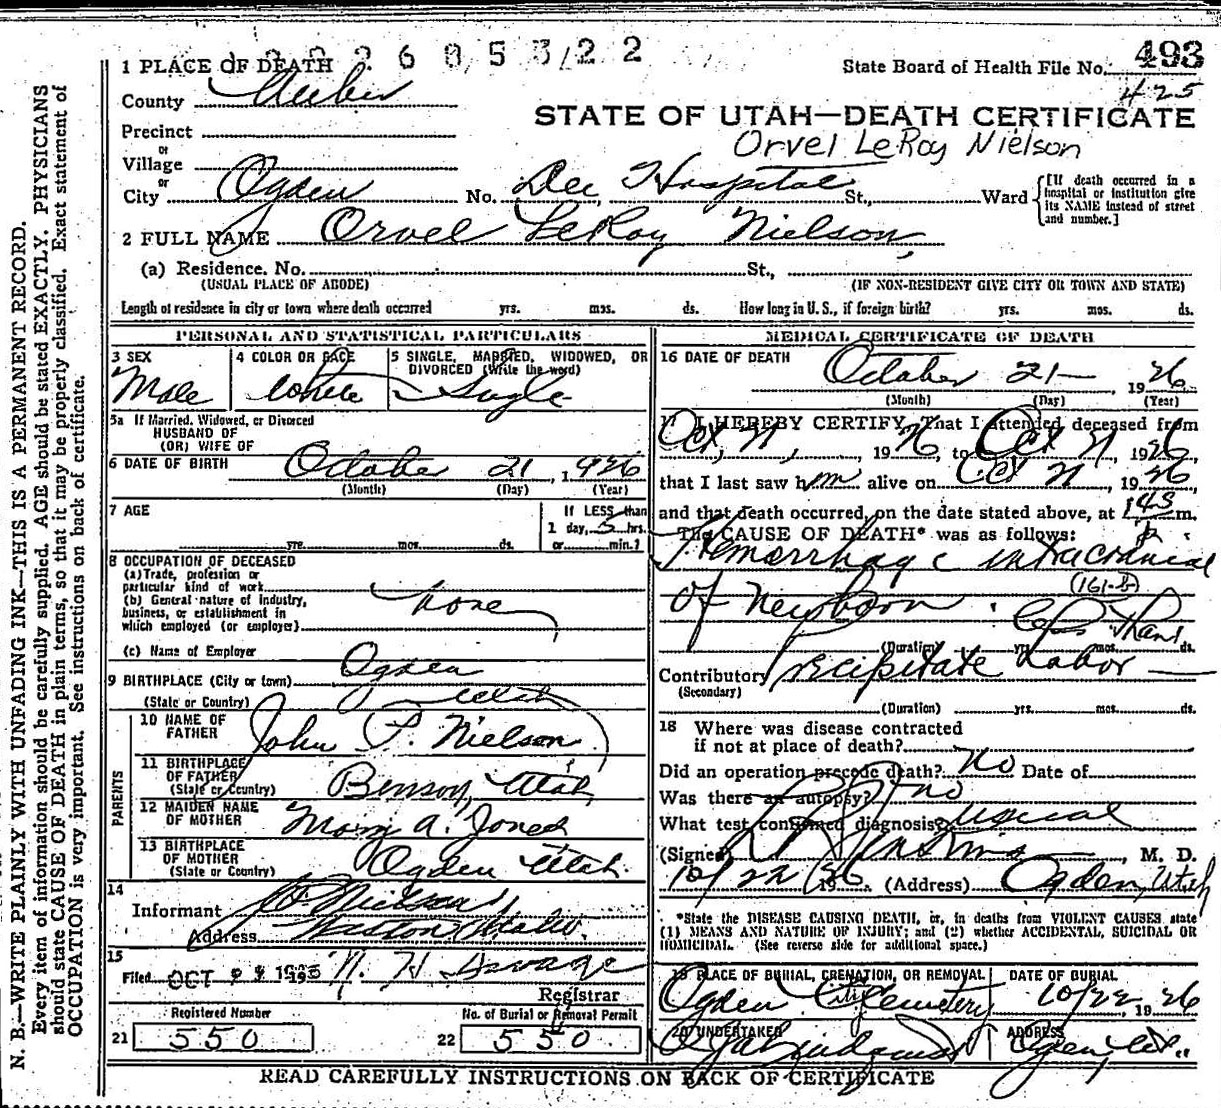 493
1 PLACE OF DEATH
State Board of Health File No.
425
County Weber
STATE OF UTAH—DEATH CERTIFICATE
Precinct
or
Orvel LeRoy Nielson
Village
or
City Ogden No. Dee Hospital St., Ward [If death occurred in a hospital or institution give its NAME instead of street and number.]
2 FULL NAME Orvel LeRoy Nielson
(a) Residence. No. St.,
(USUAL PLACE OF ABODE) (IF NON-RESIDENT GIVE CITY OR TOWN AND STATE)
Length of residence in city or town where death occurred yrs. mos. ds. How long in U. S., if foreign birth? yrs. mos. ds.
PERSONAL AND STATISTICAL PARTICULARS
3 SEX
Male
4 COLOR OR RACE
White
5 SINGLE, MARRIED, WIDOWED, OR
DIVORCED (Write the word)
Single
5a If Married, Widowed, or Divorced
HUSBAND OF
(OR) WIFE OF
6 DATE OF BIRTH October 21, 1926
(Month) (Day) (Year)
7 AGE
yrs. mos. ds.
If LESS than
1 day, 5 hrs.
or min.?
8 OCCUPATION OF DECEASED
(a) Trade, profession or
particular kind of work
(b) General nature of industry,
business, or establishment in
which employed (or employer)
None
(c) Name of Employer
9 BIRTHPLACE (City or town) Ogden
(State or Country) Utah
PARENTS
10 NAME OF
FATHER John P. Nielson
11 BIRTHPLACE
OF FATHER
(State or Country) Benson, Utah
12 MAIDEN NAME
OF MOTHER Mary A. Jones
13 BIRTHPLACE
OF MOTHER
(State or Country) Ogden Utah.
14
Informant Nielson
Address Weston Idaho.
15
Filed OCT N. H. Savage
Registrar
Registered Number
21 550
No. of Burial or Removal Permit
22 550
MEDICAL CERTIFICATE OF DEATH
16 DATE OF DEATH
October 21— 1926
(Month) (Day) (Year)
17 I HEREBY CERTIFY, That I attended deceased from
Oct, 21, 1926, to Oct 21 1926,
that I last saw him alive on Oct 21 1926,
and that death occurred, on the date stated above, at 143 m.
P.
The CAUSE OF DEATH* was as follows:
Hemorrhage intracranial
(161-b)
of Newborn.
(Duration) yrs. mos. ds.
Contributory Precipitate Labor—
(Secondary)
(Duration) yrs. mos. ds.
18 Where was disease contracted
if not at place of death?
Did an operation precede death? No Date of
Was there an autopsy? no
What test confirmed diagnosis?
(Signed) , M. D.
10/22/1926. (Address) Ogden, Utah
*State the DISEASE CAUSING DEATH, or, in deaths from VIOLENT CAUSES, state
(1) MEANS AND NATURE OF INJURY; and (2) whether ACCIDENTAL, SUICIDAL OR
HOMICIDAL. (See reverse side for additional space.)
19 PLACE OF BURIAL, CREMATION, OR REMOVAL
Ogden City Cemetery
DATE OF BURIAL
10/22, 1926
20 UNDERTAKER
ADDRESS
Ogden, Ut.
READ CAREFULLY INSTRUCTIONS ON BACK OF CERTIFICATE
N. B.—WRITE PLAINLY WITH UNFADING INK—THIS IS A PERMANENT RECORD.
Every item of information should be carefully supplied. AGE should be stated EXACTLY. PHYSICIANS
should state CAUSE OF DEATH in plain terms, so that it may be properly classified. Exact statement of
OCCUPATION is very important. See instructions on back of certificate.